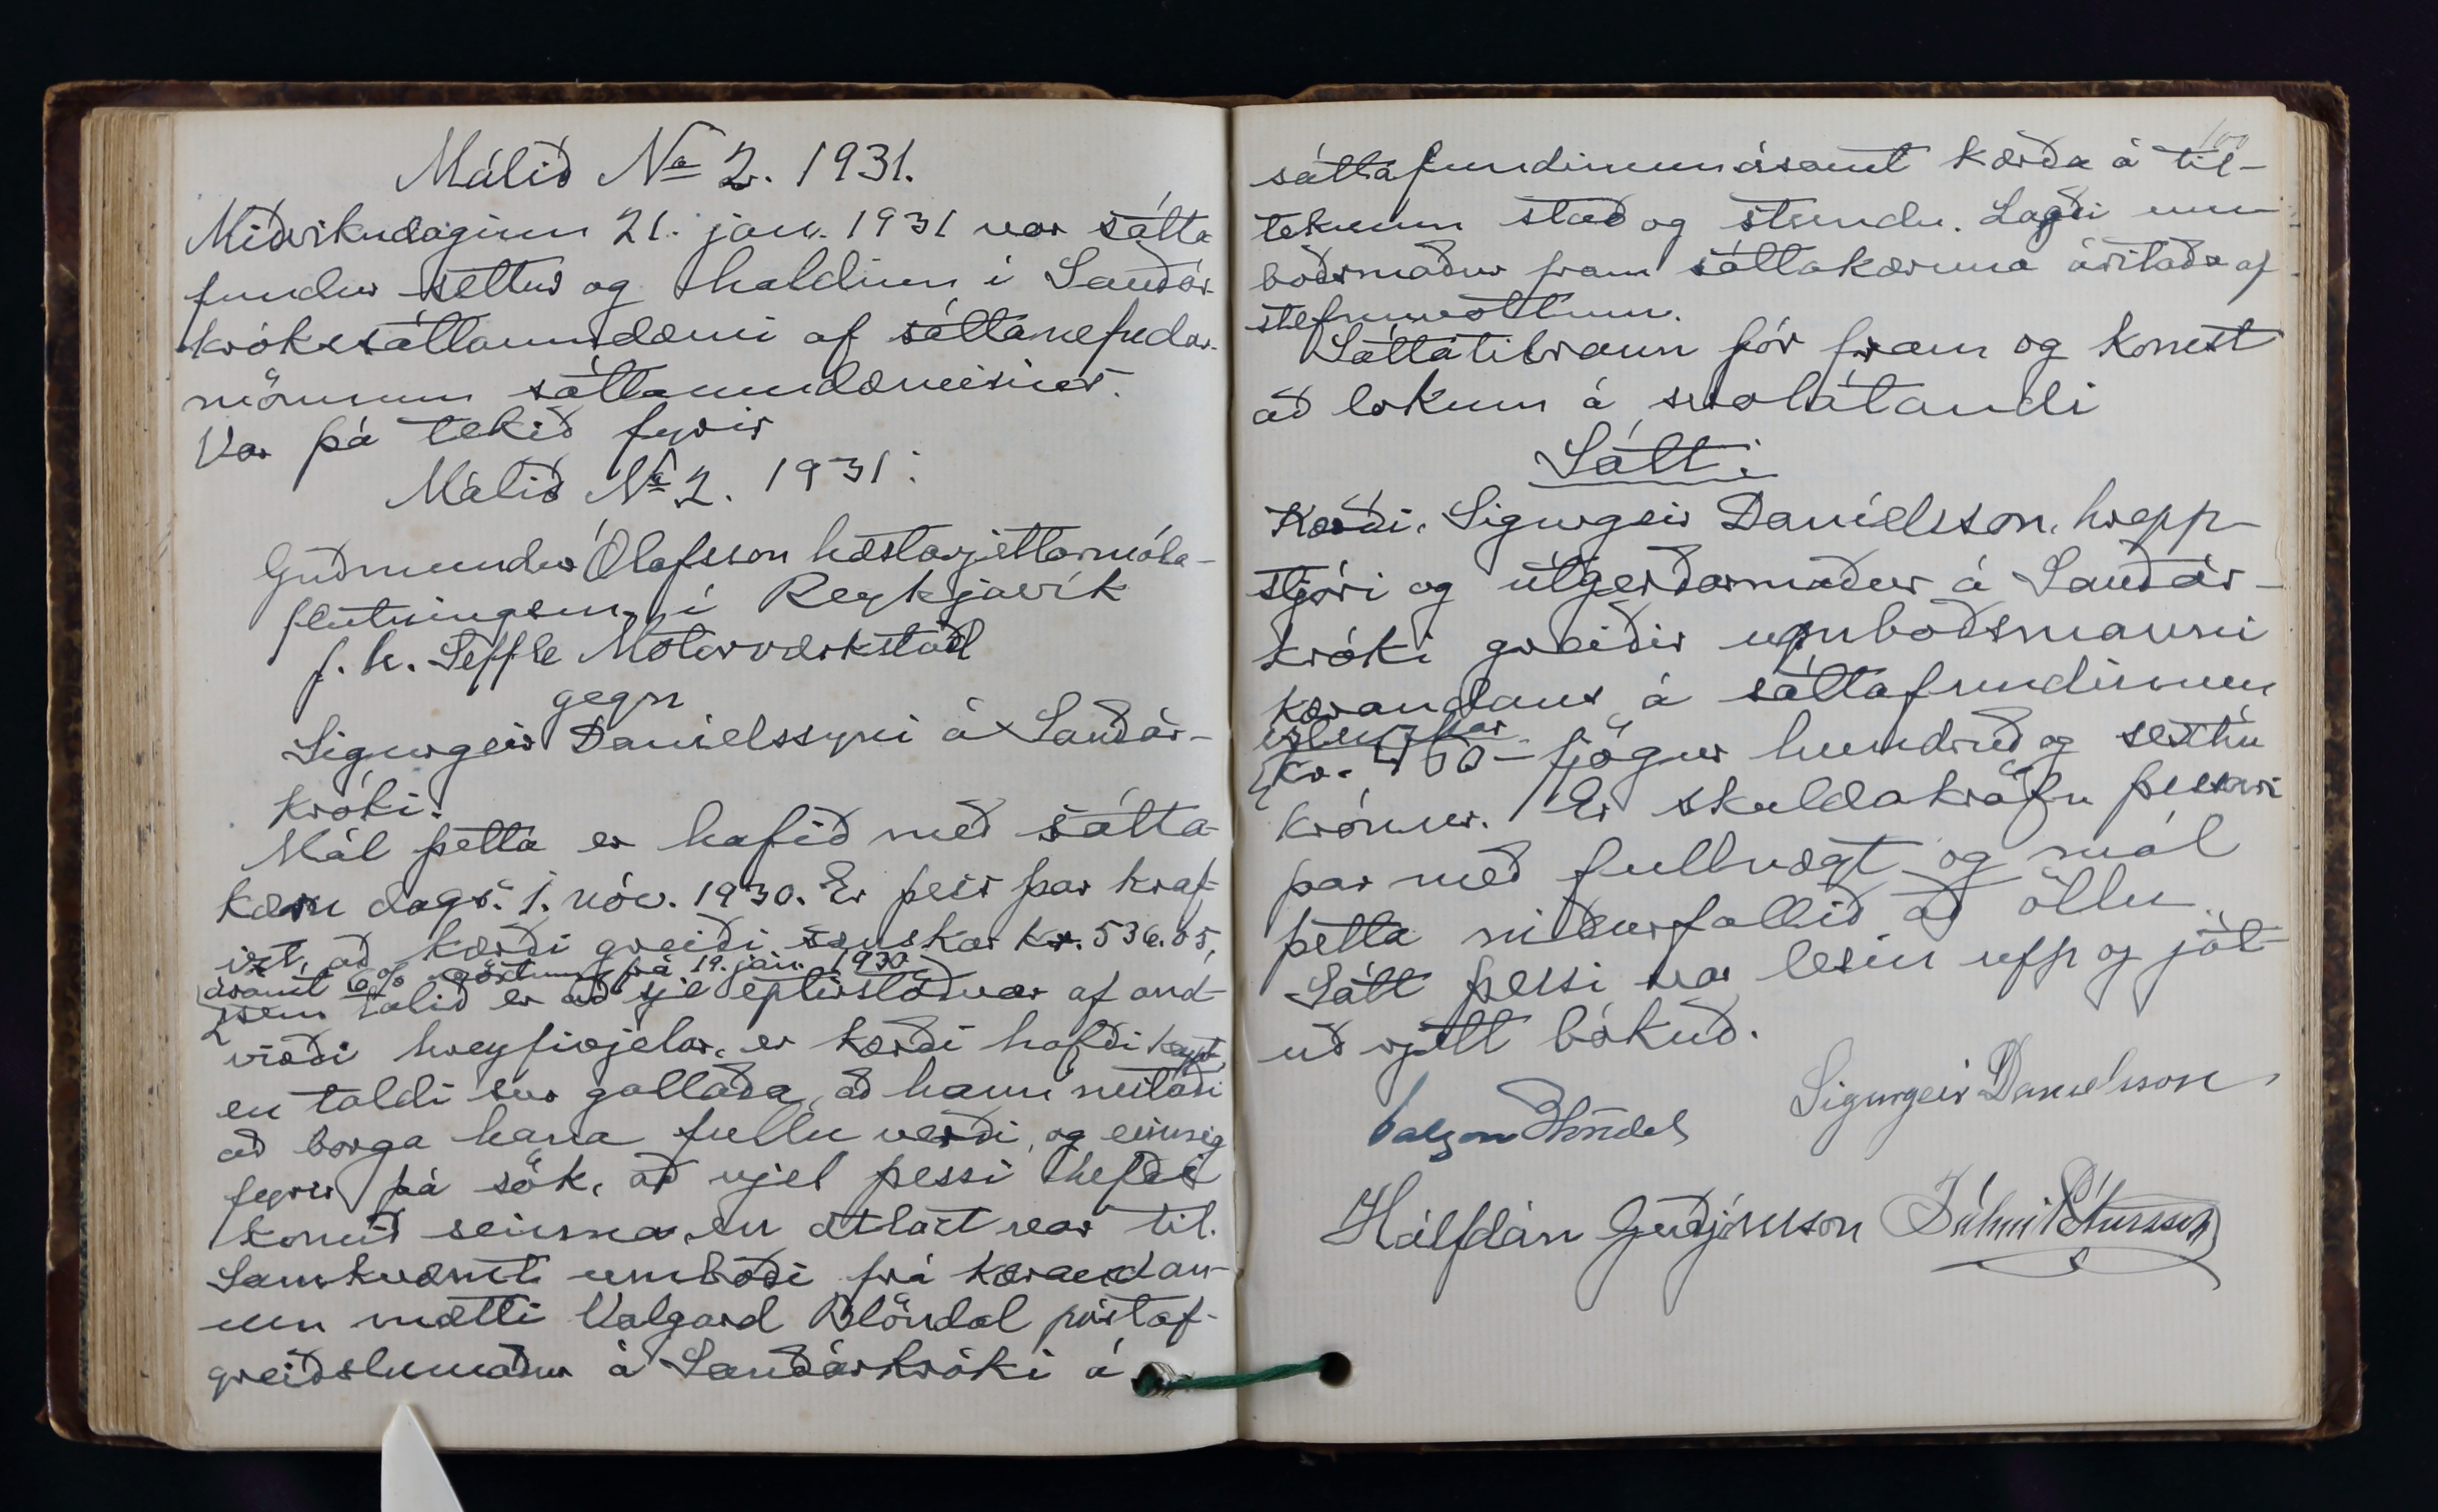 Málið No 2. 1931.
Miðvikudaginn 21. jan. 1931 var sátta
fundur settur og haldinn í Sauðár-
króksáttaumdæmi af sáttanefndar-
mönnum sáttaumdæmisins.
Var þá tekið fyrir
Málið No 2. 1931:
Guðmundur Ólafsson hæstarjettarmála-
flutningsm. í Reykjavík
f. h. Seffle Motorverkstad
gegn
Sigurgeir Daníelssyni á Sauðár-
króki.
Mál þetta er hafið með sátta-
kæru dags. 1. nóv. 1930. Er þess þar kraf-
izt, að kærði greiði sænskar kr. 536.05,
ásamt 6% vöxtum frá 19. jan. 1930
sem talið er að sje eptirstöðvar af and-
virði hreyfivjelar, er kærði hafði keypt,
en taldi svo gallaða, að hann neitaði
að borga hana fullu verði, og einnig
fyrir þá sök, að vjel þessi hefði
komið seinna en ætlast var til.
Samkvæmt umboði frá kærandan-
um mætti Valgard Blöndal póstaf-
greiðslumaður á Sauðárkróki á
100
sáttafundinum ásamt kærða á til-
teknum stað og stundu. Lagði um
boðsmaður fram sáttakæruna áritaða af
stefnuvottum.
Sáttatilraun fór fram og komst
að lokum á svolátandi
Sátt:
Kærði, Sigurgeir Daníelsson, hrepp-
stjóri og útgerðarmaður á Sauðár-
króki greiðir umboðsmanni
kærandans á sáttafundinum
íslenzkar
kr. 460 – fjögur hundruð og sextíu
krónur. Er skuldakröfu þessari
þar með fullnægt og mál
þetta niðurfallið að öllu.
Sátt þessi var lesin upp og ját-
uð rjett bókuð.
Sigurgeir Daníelsson
Valgard Blöndal
Hálfdán Guðjónsson Pálmi Pétursson